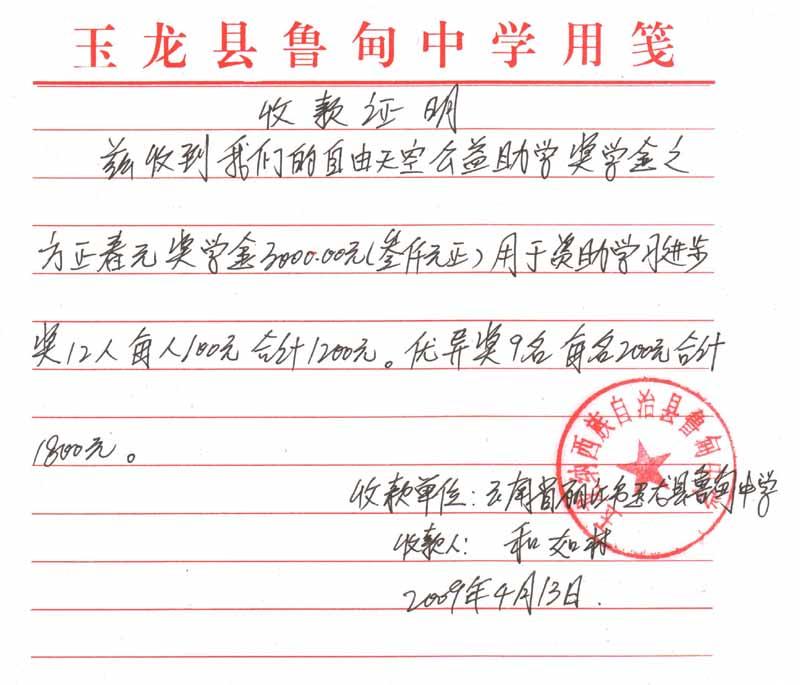 玉龙县鲁甸中学用笺
收款证明
兹收到我们的自由天空公益助学奖学金之
方正春元奖学金3000.00元(叁仟元正)用于资助学习进步
奖12人每人100元合计1200元。优异奖9名每名200元合计
1800元。
纳西族自治县鲁甸中
收款单位:云南省丽江市玉龙县鲁甸中学
收款人: 和如林
2009年4月13日.